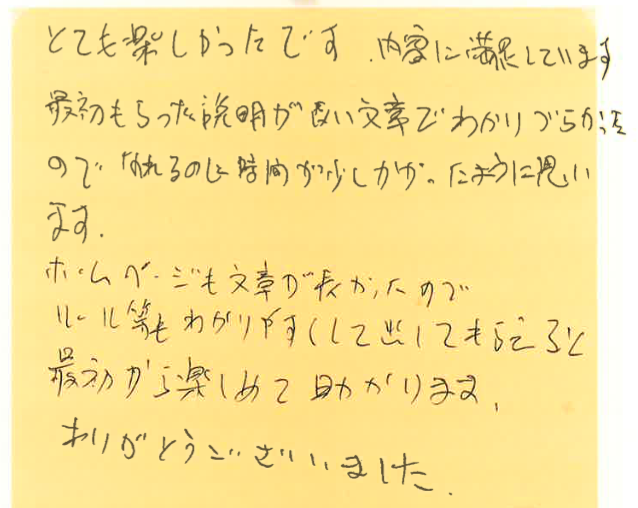 とても楽しかったです.内容に満足しています
最初もらった説明が長い文章でわかりづらかった
ので なれるのに時間が少しかかったように思い
ます.
ホームページも文章が長かったので
ルール等もわかりやすくして出してもらえると
最初から楽しめて助かります.
ありがとうございました.